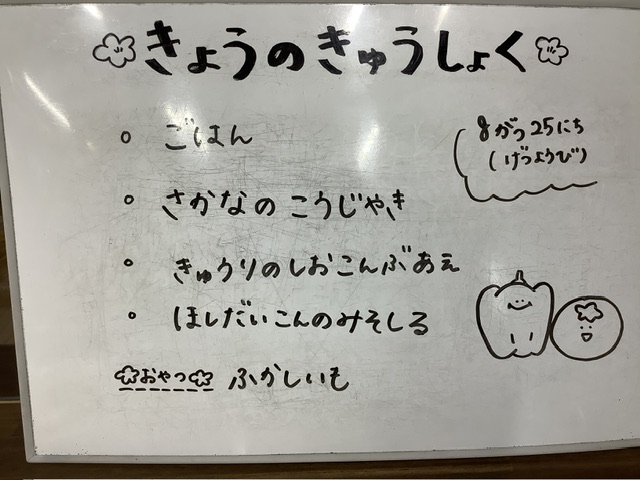 きょうのきゅうしょく
8がつ25にち
(げつようび)
。ごはん
。さかなのこうじやき
。きゅうりのしおこんぶあえ
。ほしだいこんのみそしる
おやつ ふかしいも